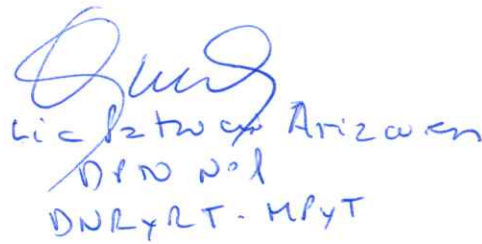 Lic Patricio Arizcuren
DPN Nº1
DNRyRT - MPyT